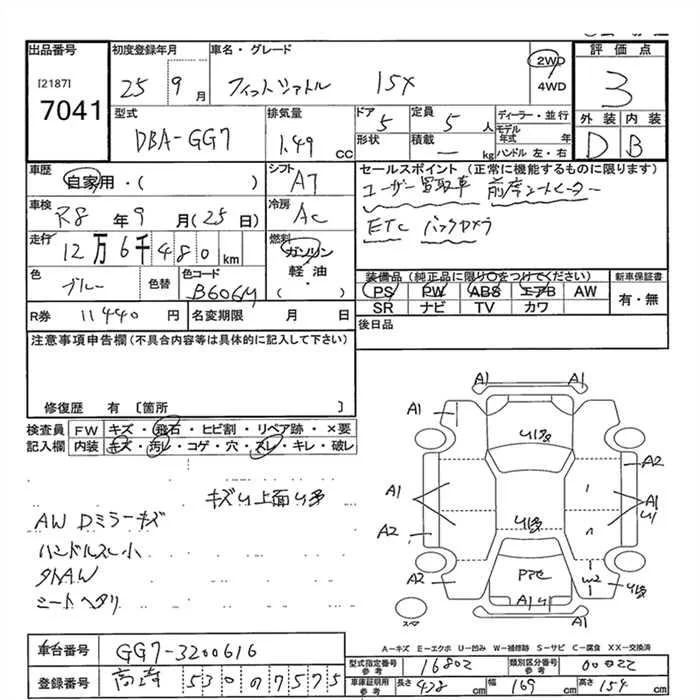 出品番号
[2187]
7041
初度登録年月
25 9月
車名・グレード
フィットシャトル 15X
2WD
4WD
評価点
3
外装 内装
D B
型式
DBA-GG7
排気量
1.49 cc
ドア 5
形状
定員 5 人
積載 — kg
ディーラー・並行
モデル年式 年
ハンドル 左・右
車歴
自家用・( )
シフト
AT
セールスポイント (正常に機能するものに限ります)
ユーザー買取車 前席シートヒーター
ETC バックカメラ
車検
R8年9月(25日)
冷房
AC
走行
12万6千480km
燃料
ガソリン
軽油・
( )
色
ブルー
色替
色コード
B606M
装備品(純正品に限り○をつけてください)
PS PW ABS エアB AW
SR ナビ TV カワ
新車保証書
有・無
R券 11440円
名変期限 月 日
後日品
注意事項申告欄(不具合内容等は具体的に記入して下さい)
修復歴 有 〔箇所 〕
検査員
記入欄
FW キズ・飛石・ヒビ割・リペア跡・×要
内装 キズ・汚レ・コゲ・穴・スレ・キレ・破レ
キズU上面U多
AW Dミラーキズ
ハンドルスレ小
外AW
シートヘタリ
A1
A1
A1
U1多
A2
A1
A1
U1
A2
U1多
A2
Pマセ
U2
U1多
A1U1
スマ
A-キズ E-エクボ U-凹み W-補修跡 S-サビ C-腐食 XX-交換済
車台番号
GG7-3200616
登録番号
高崎 530 の 7575
型式指定番号 参考
16802
類別区分番号 参考
00022
車庫証明用 参考
長さ 438 cm
幅 169 cm
高さ 154 cm